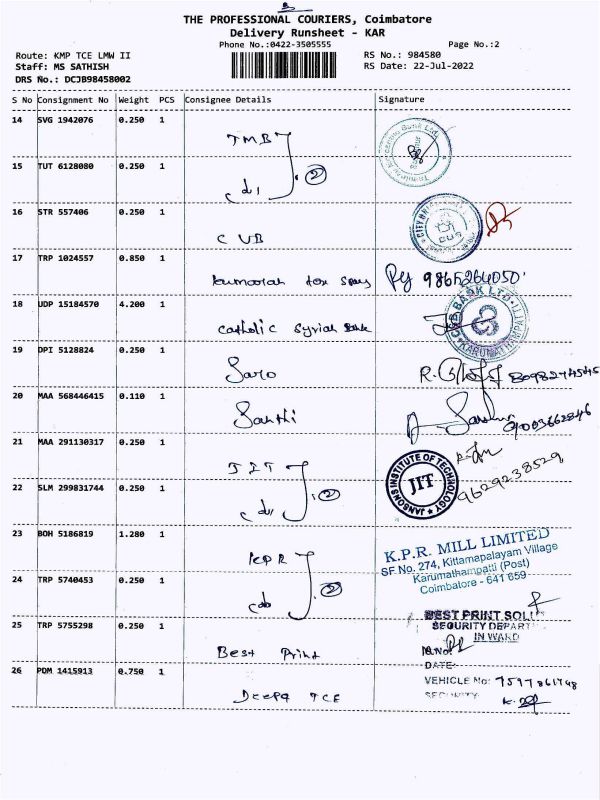 THE PROFESSIONAL COURIERS, Coimbatore
Delivery Runsheet - KAR
Phone No.:0422-3505555
Page No.:2
Route: KMP TCE LMW II
RS No.: 984580
Staff: MS SATHISH
RS Date: 22-Jul-2022
DRS No.: DCJB98458002
S No Consignment No Weight PCS Consignee Details Signature
14 SVG 1942076 0.250 1 TMB
15 TUT 6128080 0.250 1 2
16 STR 557406 0.250 1 CUB
17 TRP 1024557 0.850 1 9865264050
18 UDP 15184570 4.200 1 Catholic Syrian Bank
CSB BANK LTD.
19 DPI 5128824 0.250 1 Saro R. 8098274545
20 MAA 568446415 0.110 1 Santhi 9003662846
21 MAA 291130317 0.250 1 JIT
JANSONS INSTITUTE OF TECHNOLOGY
JIT
9629238529
22 SLM 299831744 0.250 1 2
23 BOH 5186819 1.280 1 KPR
K.P.R. MILL LIMITED
SF No. 274, Kittamapalayam Village
Karumathampatti (Post)
Coimbatore - 641 659
24 TRP 5740453 0.250 1 2
BEST PRINT
SECURITY
IN WARD
25 TRP 5755298 0.250 1 Best Print
DATE
VEHICLE No: 7597861748
26 PDM 1415913 0.750 1 Deepa TCE
SECURITY